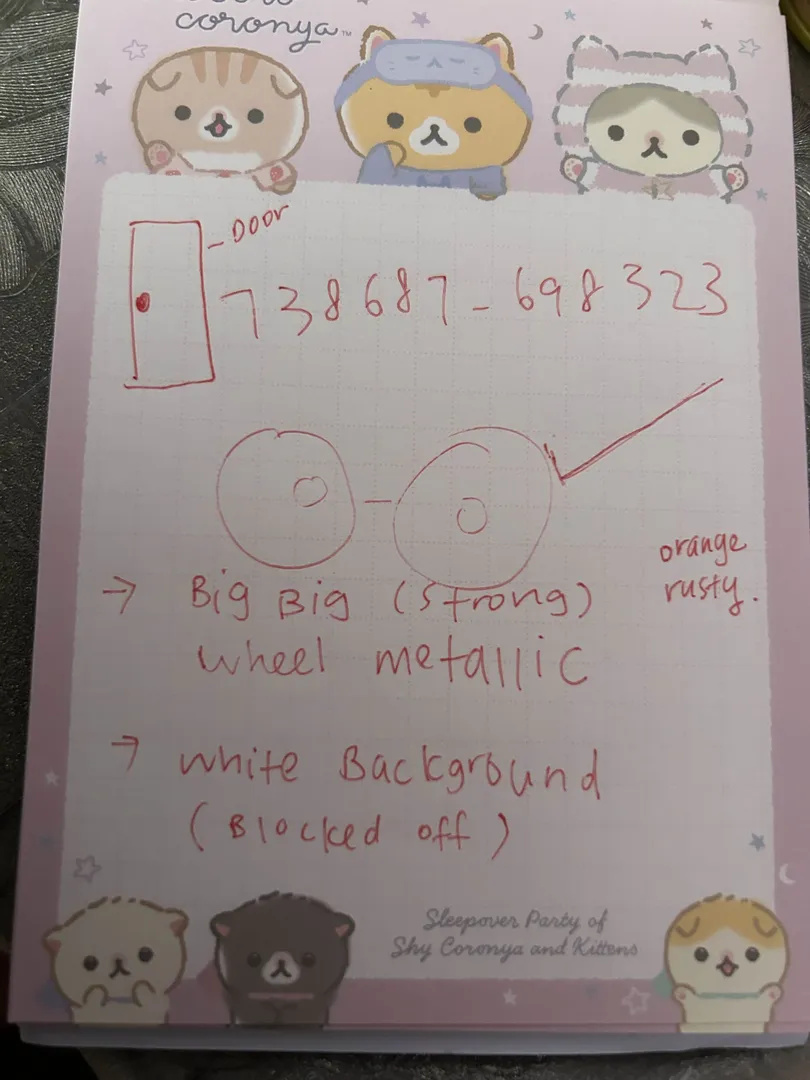 coronya™
- Door
738687-698323
orange
rusty.
→ Big Big (strong)
wheel metallic
→ white Background
(Blocked off)
Sleepover Party of
Shy Coronya and Kittens